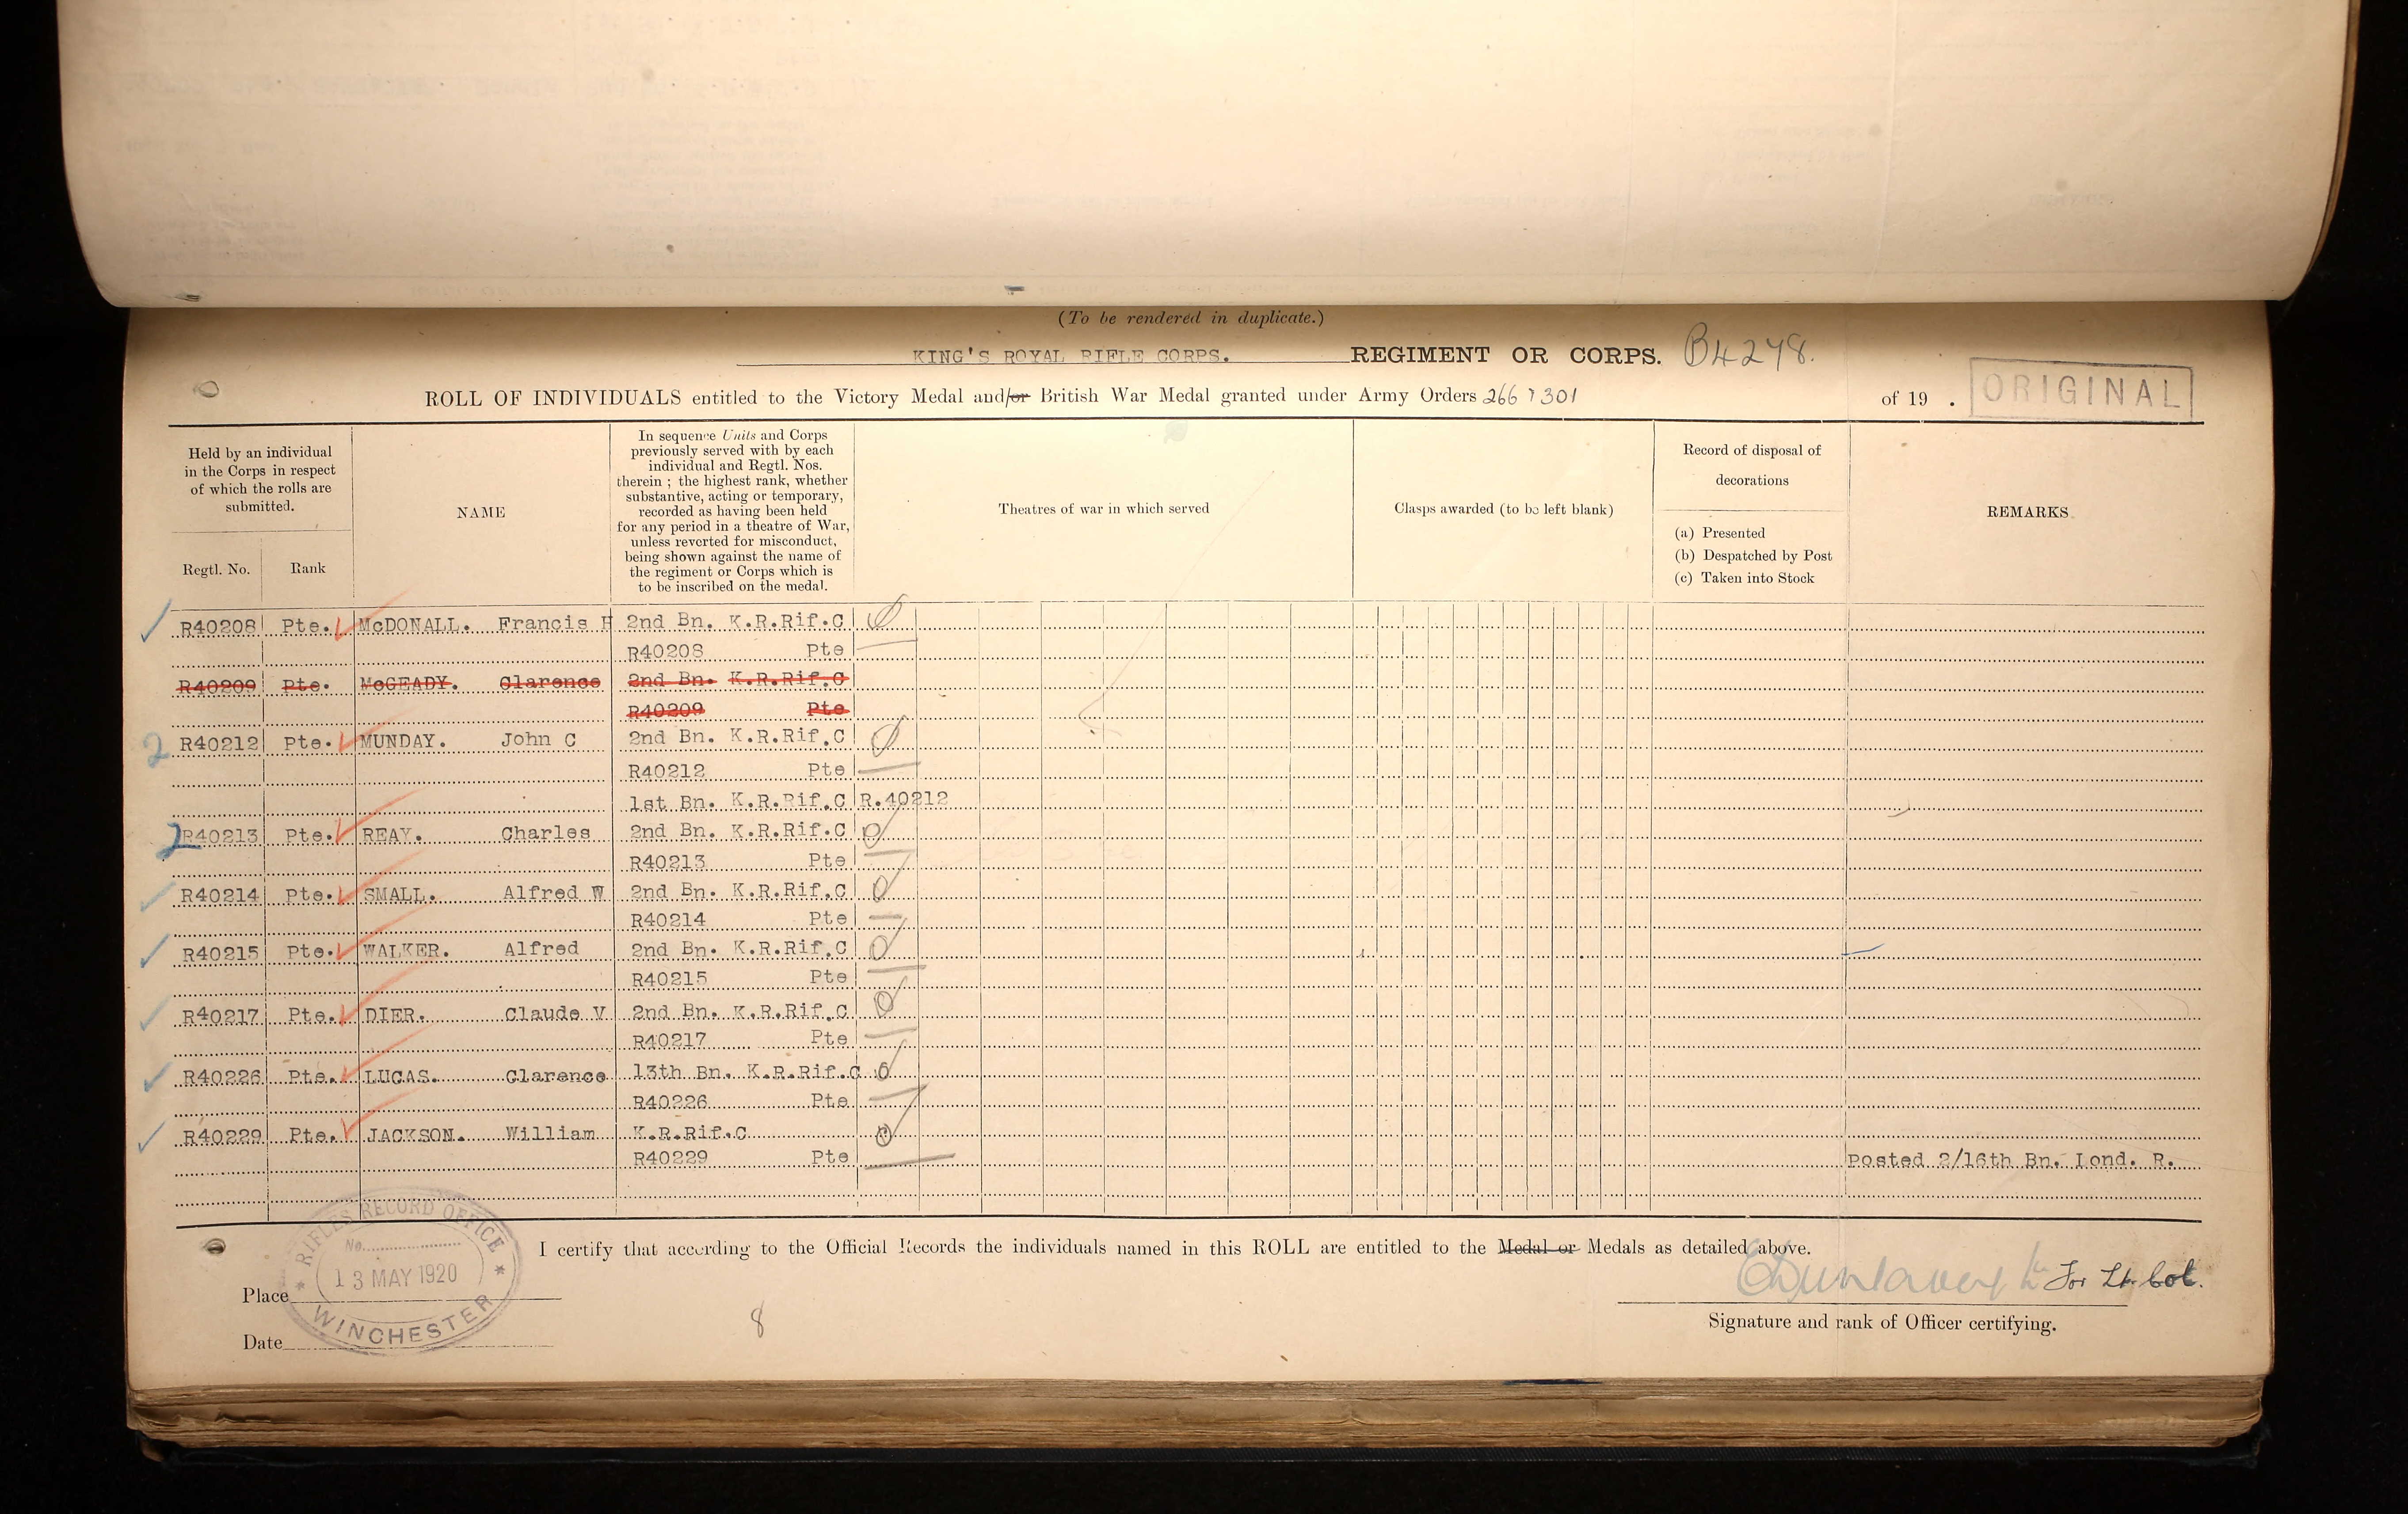 (To be rendered in duplicate.)
KING'S ROYAL RIFLE CORPS. REGIMENT OR CORPS. B4278.
ROLL OF INDIVIDUALS entitled to the Victory Medal and/or British War Medal granted under Army Orders 266 & 301 of 19 . ORIGINAL
Held by an individual
in the Corps in respect
of which the rolls are
submitted.
Regtl. No. Rank
NAME
In sequence Units and Corps
previously served with by each
individual and Regtl. Nos.
therein ; the highest rank, whether
substantive, acting or temporary,
recorded as having been held
for any period in a theatre of War,
unless reverted for misconduct,
being shown against the name of
the regiment or Corps which is
to be inscribed on the medal.
Theatres of war in which served
Clasps awarded (to be left blank)
Record of disposal of
decorations
(a) Presented
(b) Despatched by Post
(c) Taken into Stock
REMARKS
R40208 Pte. McDONALL. Francis H 2nd Bn. K.R.Rif.C
R40208 Pte
R40209 Pte. McGEADY. Clarence 2nd Bn. K.R.Rif.C
R40209 Pte
2 R40212 Pte. MUNDAY. John C 2nd Bn. K.R.Rif.C
R40212 Pte
1st Bn. K.R.Rif.C R.40212
2 R40213 Pte. REAY. Charles 2nd Bn. K.R.Rif.C
R40213 Pte
R40214 Pte. SMALL. Alfred W 2nd Bn. K.R.Rif.C
R40214 Pte
R40215 Pte. WALKER. Alfred 2nd Bn. K.R.Rif.C
R40215 Pte
R40217 Pte. DIER. Claude V 2nd Bn. K.R.Rif.C
R40217 Pte
R40226 Pte. LUCAS. Clarence 13th Bn. K.R.Rif.C
R40226 Pte
R40229 Pte. JACKSON. William K.R.Rif.C
R40229 Pte posted 2/16th Bn. Lond. R.
I certify that according to the Official Records the individuals named in this ROLL are entitled to the Medal or Medals as detailed above.
RIFLES RECORD OFFICE
No.
13 MAY 1920
WINCHESTER
Place
Date
8
For Lt. Col.
Signature and rank of Officer certifying.